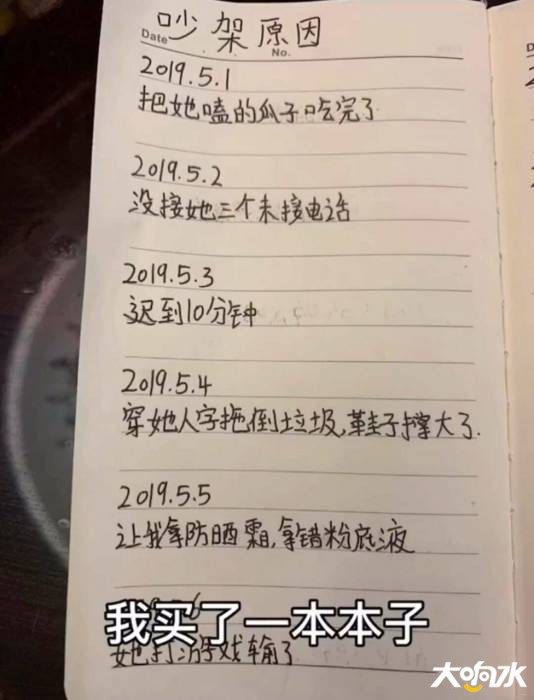 吵架原因
Date
No.
2019.5.1
把她嗑的瓜子吃完了
2019.5.2
没接她三个未接电话
2019.5.3
迟到10分钟
2019.5.4
穿她人字拖倒垃圾,鞋子撑大了.
2019.5.5
让我拿防晒霜,拿错粉底液
我买了一本本子
她打游戏输了
大响水